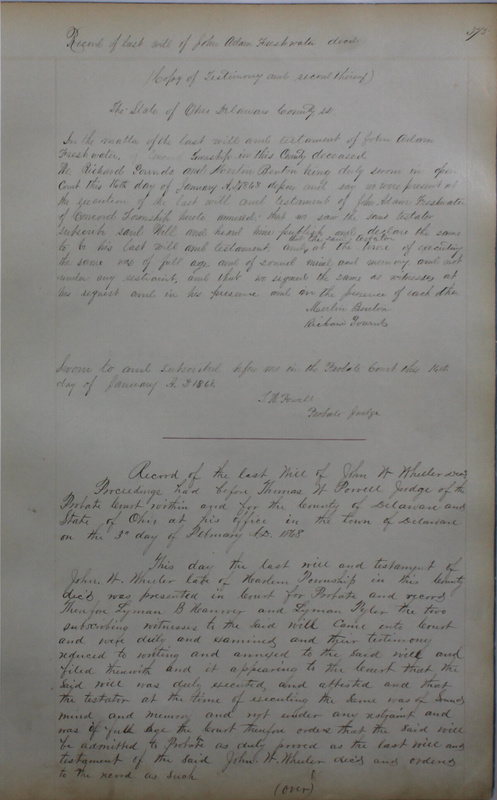 Record of last will of John Adam Freshwater decd
(Copy of Testimony and record thereof)
The State of Ohio Delaware County ss
In the matter of the last will and testament of John Adam
Freshwater, of Concord Township in this County deceased
We Richard Pounds and Merlin Benton being duly sworn in open
Court this 16th day of January A.D. depose and say we were present at
the execution of the last will and testament of John Adam Freshwater
of Concord Township hereto annexed: that we saw the said testator
subscribe said Will and heard him publish and declare the same
that the said testator
to be his last will and testament, and at the time of executing
the same was of full age and of sound mind and memory and not
under any restraint, and that we signed the same as witnesses at
his request and in his presence and in the presence of each other
Benton
Richard
Sworn to and subscribed before me in the Probate Court this 16th
day of January A. D.
T. W. Powell
Probate Judge
Record of the last Will of John W Wheeler decd
Proceedings had before Thomas W Powell Judge of the
Probate Court within and for the County of Delaware and
State of Ohio at his office in the town of Delaware
on the 3d day of February A.D. 1868
This day the last will and testament of
John W. Wheeler late of Harlem Township in this County
dec'd, was presented in Court for Probate and record
Therefore Lyman B Hanover and Lyman Tyler the two
subscribing witnesses to the said will came into Court
and were duly and examined and their testimony
reduced to writing and annexed to the said will and
filed therewith and it appearing to the Court that the
said will was duly executed, and attested and that
the testator at the time of executing the same was of sound
mind and memory and not under any restraint and
was of full age the Court therefore orders that the said will
be admitted to Probate as duly proved as the last will and
testament of the said John. W. Wheeler decd and orders
to the record as such
(over)